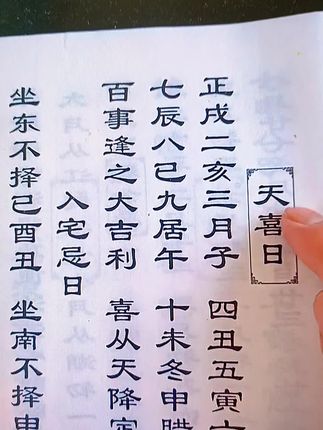 天喜日
正戌二亥三月子 四丑五寅
七辰八已九居午 十未冬申腊
百事逢之大吉利 喜从天降定
入宅忌日
坐东不择已酉丑 坐南不择申